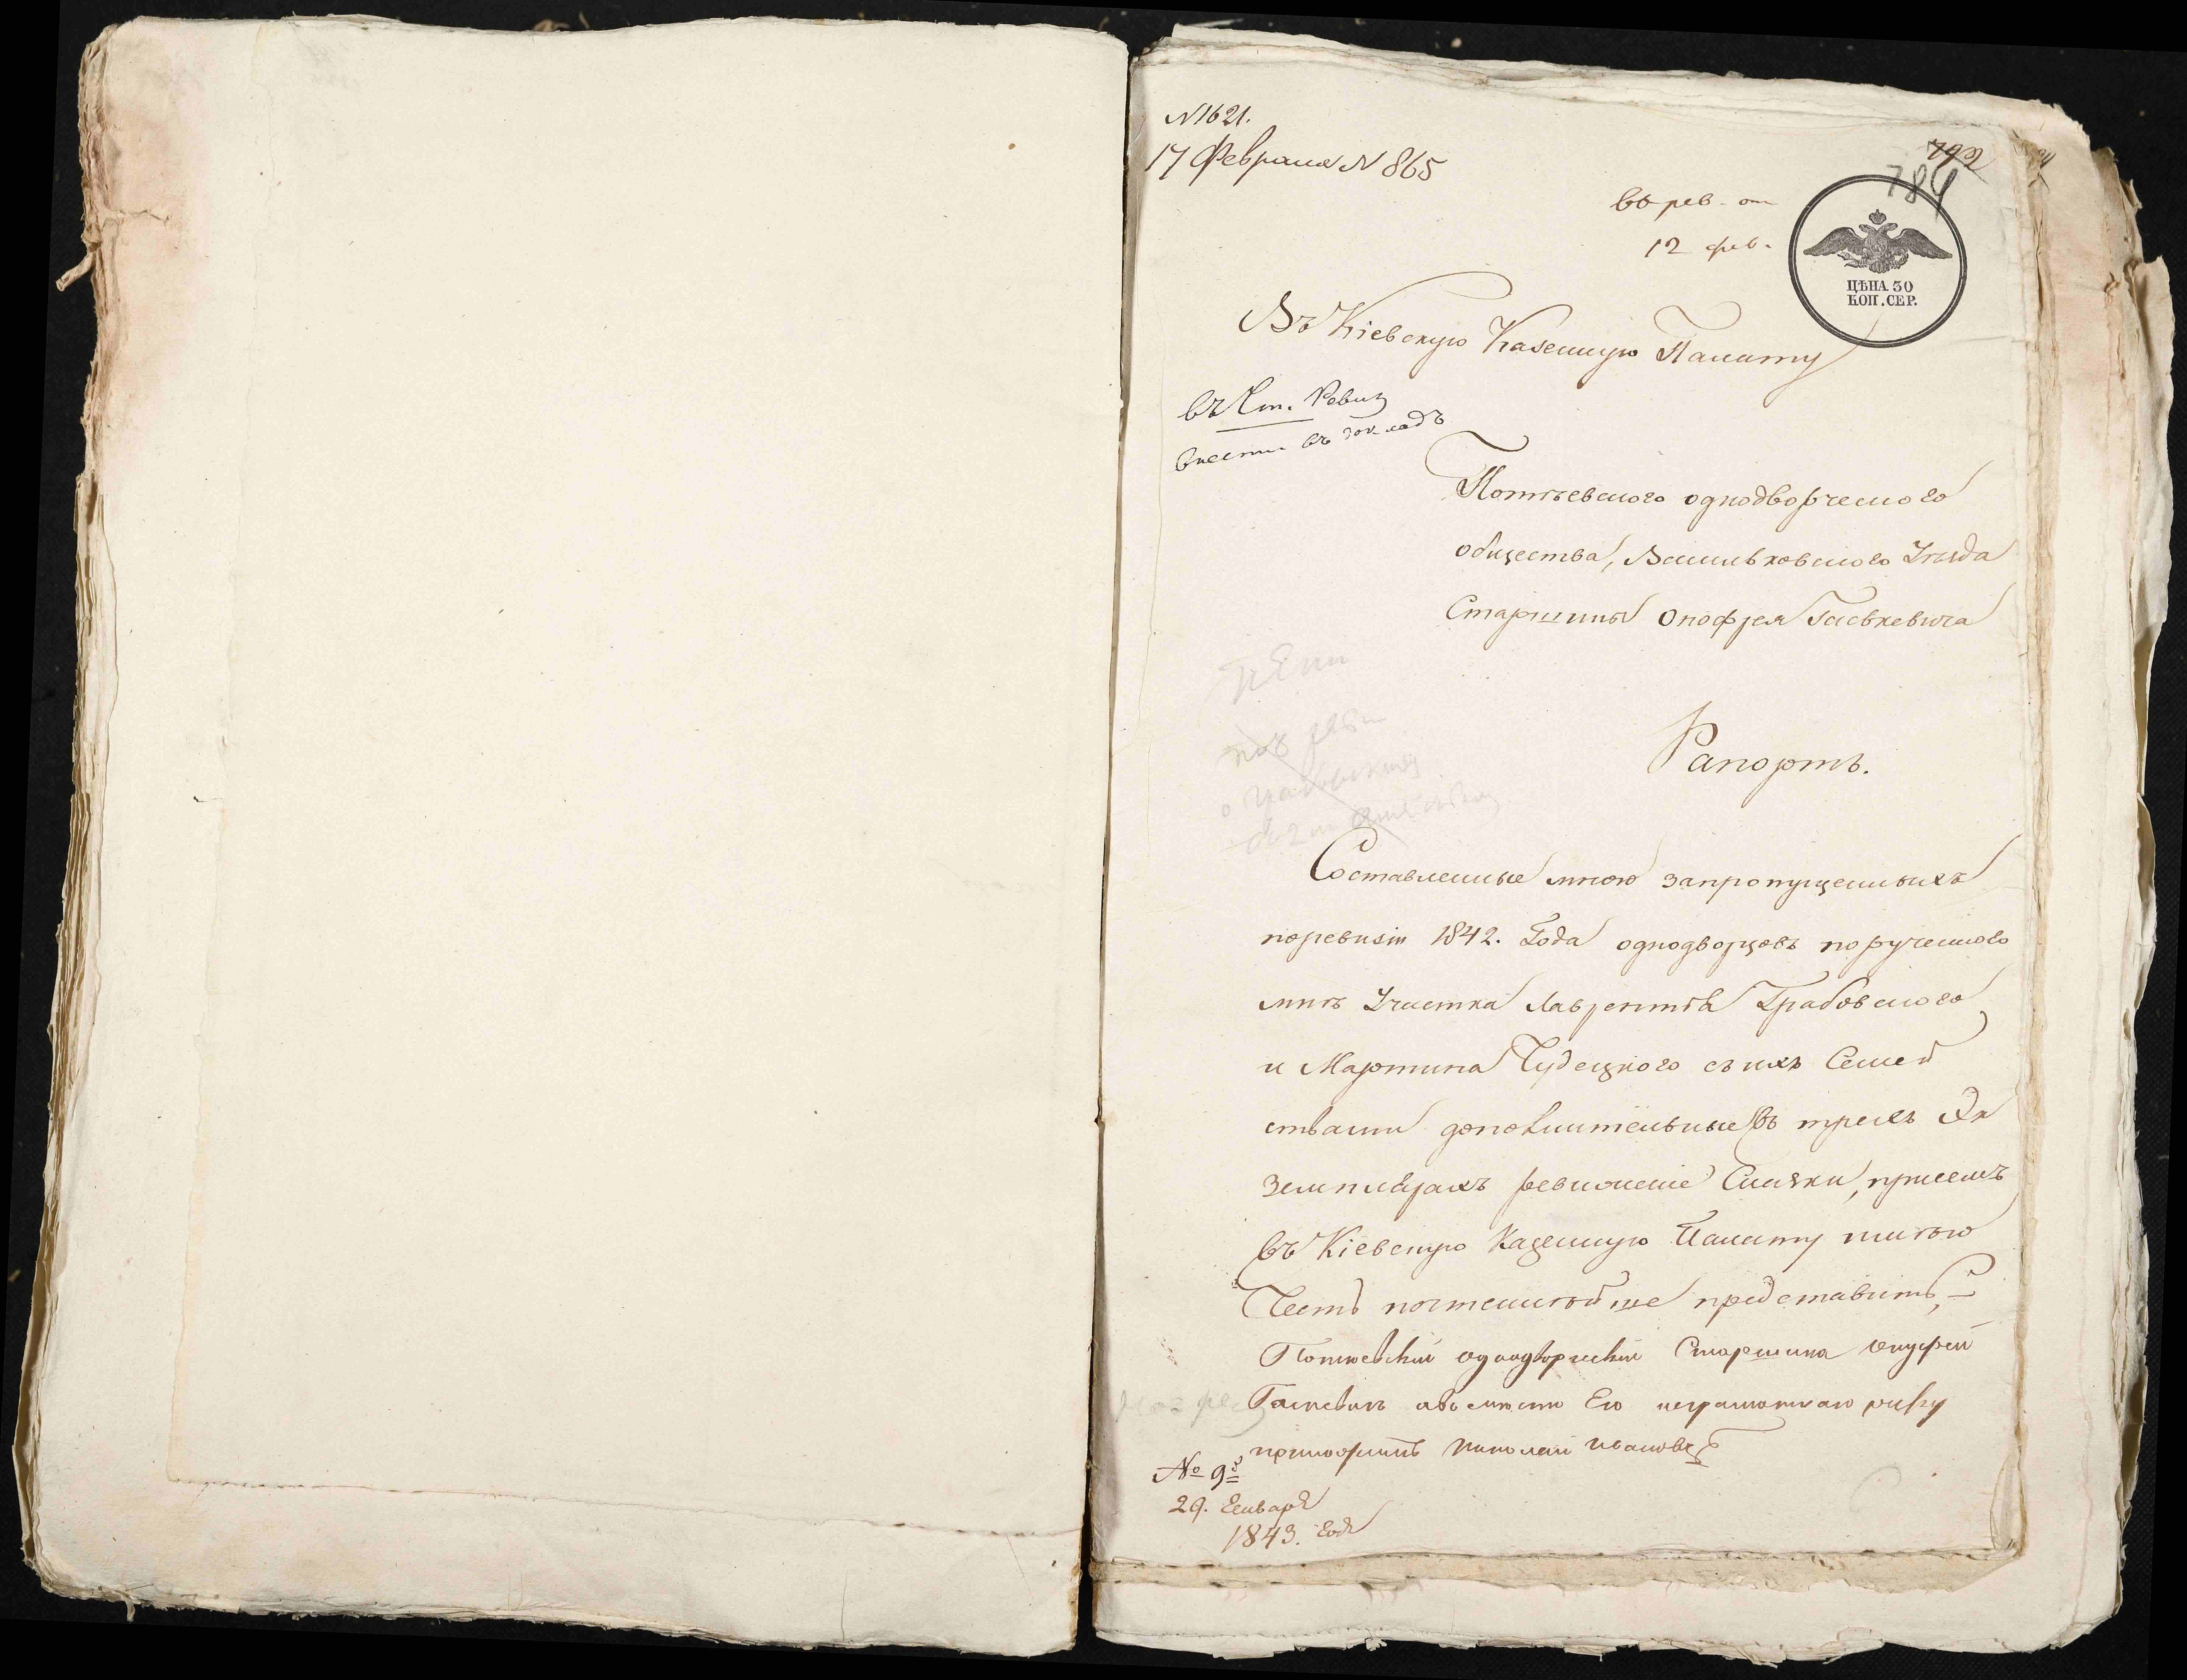 N 1621.
17 Февраля N 865
792
784
въ рев. от
12 фев.
ЦѢНА 30
КОП. СЕР.
Въ Кіевскую Казенную Палату
въ От. Ревиз
внести въ докладъ
Потіевского однодворческого
общества, Васильковского Уѣзда
Старшины Онофрея Гаськевича
Рапортъ.
Составленные мною запропущенныхъ
поревизіи 1842. Года однодворцовъ порученного
мнѣ Участка Лаврентія Грабовского
и Мартина Чудецкого съ ихъ Семей
ствами дополнительные въ трехъ Эк
земплярахъ ревизские Сказки, присемъ
въ Кіевскую Казенную Палату имѣю
Честь почтеннѣйше представить,
Потиевский однодворский Старшина Онуфрей
Гаскевич авместо Его неграмотнаго руку
приложилъ Николай
№ 93
29. Генваря
1843. Года